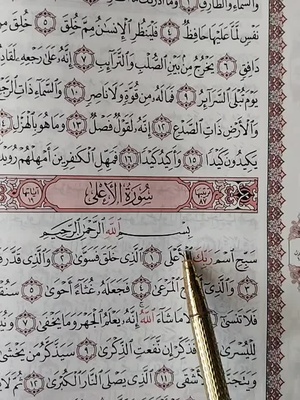 وَالسَّمَاءِ وَالطَّارِقِ
نَفْسٍ لَّمَّا عَلَيْهَا حَافِظٌ ٤ فَلْيَنظُرِ الْإِنسَٰنُ مِمَّ خُلِقَ ٥ خُلِقَ مِن
دَافِقٍ ٦ يَخْرُجُ مِنۢ بَيْنِ الصُّلْبِ وَالتَّرَائِبِ ٧ إِنَّهُ عَلَىٰ رَجْعِهِ لَقَادِرٌ
يَوْمَ تُبْلَى السَّرَائِرُ ٩ فَمَا لَهُ مِن قُوَّةٍ وَلَا نَاصِرٍ ١٠ وَالسَّمَاءِ ذَاتِ الرَّجْعِ
وَالْأَرْضِ ذَاتِ الصَّدْعِ ١٢ إِنَّهُ لَقَوْلٌ فَصْلٌ ١٣ وَمَا هُوَ بِالْهَزْلِ
يَكِيدُونَ كَيْدًا ١٥ وَأَكِيدُ كَيْدًا ١٦ فَمَهِّلِ الْكَٰفِرِينَ أَمْهِلْهُمْ رُوَيْدًا
سُورَةُ الْأَعْلَىٰ
بِسْمِ اللَّهِ الرَّحْمَٰنِ الرَّحِيمِ
سَبِّحِ اسْمَ رَبِّكَ الْأَعْلَى ١ الَّذِي خَلَقَ فَسَوَّىٰ ٢ وَالَّذِي قَدَّرَ
٣ وَالَّذِي أَخْرَجَ الْمَرْعَىٰ ٤ فَجَعَلَهُ غُثَاءً أَحْوَىٰ ٥
فَلَا تَنسَىٰ ٦ مَا شَاءَ اللَّهُ إِنَّهُ يَعْلَمُ الْجَهْرَ وَمَا يَخْفَىٰ ٧
لِلْيُسْرَىٰ فَذَكِّرْ إِن نَّفَعَتِ الذِّكْرَىٰ ٩ سَيَذَّكَّرُ مَن يَخْشَىٰ
وَيَتَجَنَّبُهَا الْأَشْقَى ١١ الَّذِي يَصْلَى النَّارَ الْكُبْرَىٰ ١٢ ثُمَّ لَا